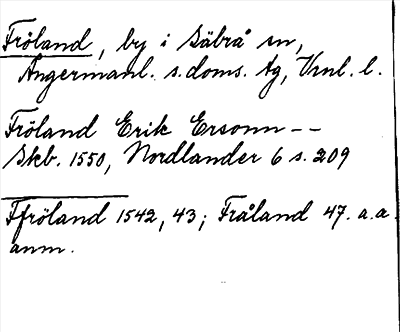 Fröland, by i Säbrå sn,
Ångermanl. s. doms. tg, Vrnl. l.
Fröland Erik Ersonn --
Skb. 1550, Nordlander 6 s. 209
Ffröland 1542, 43; Fråland 47. a.a.
anm.